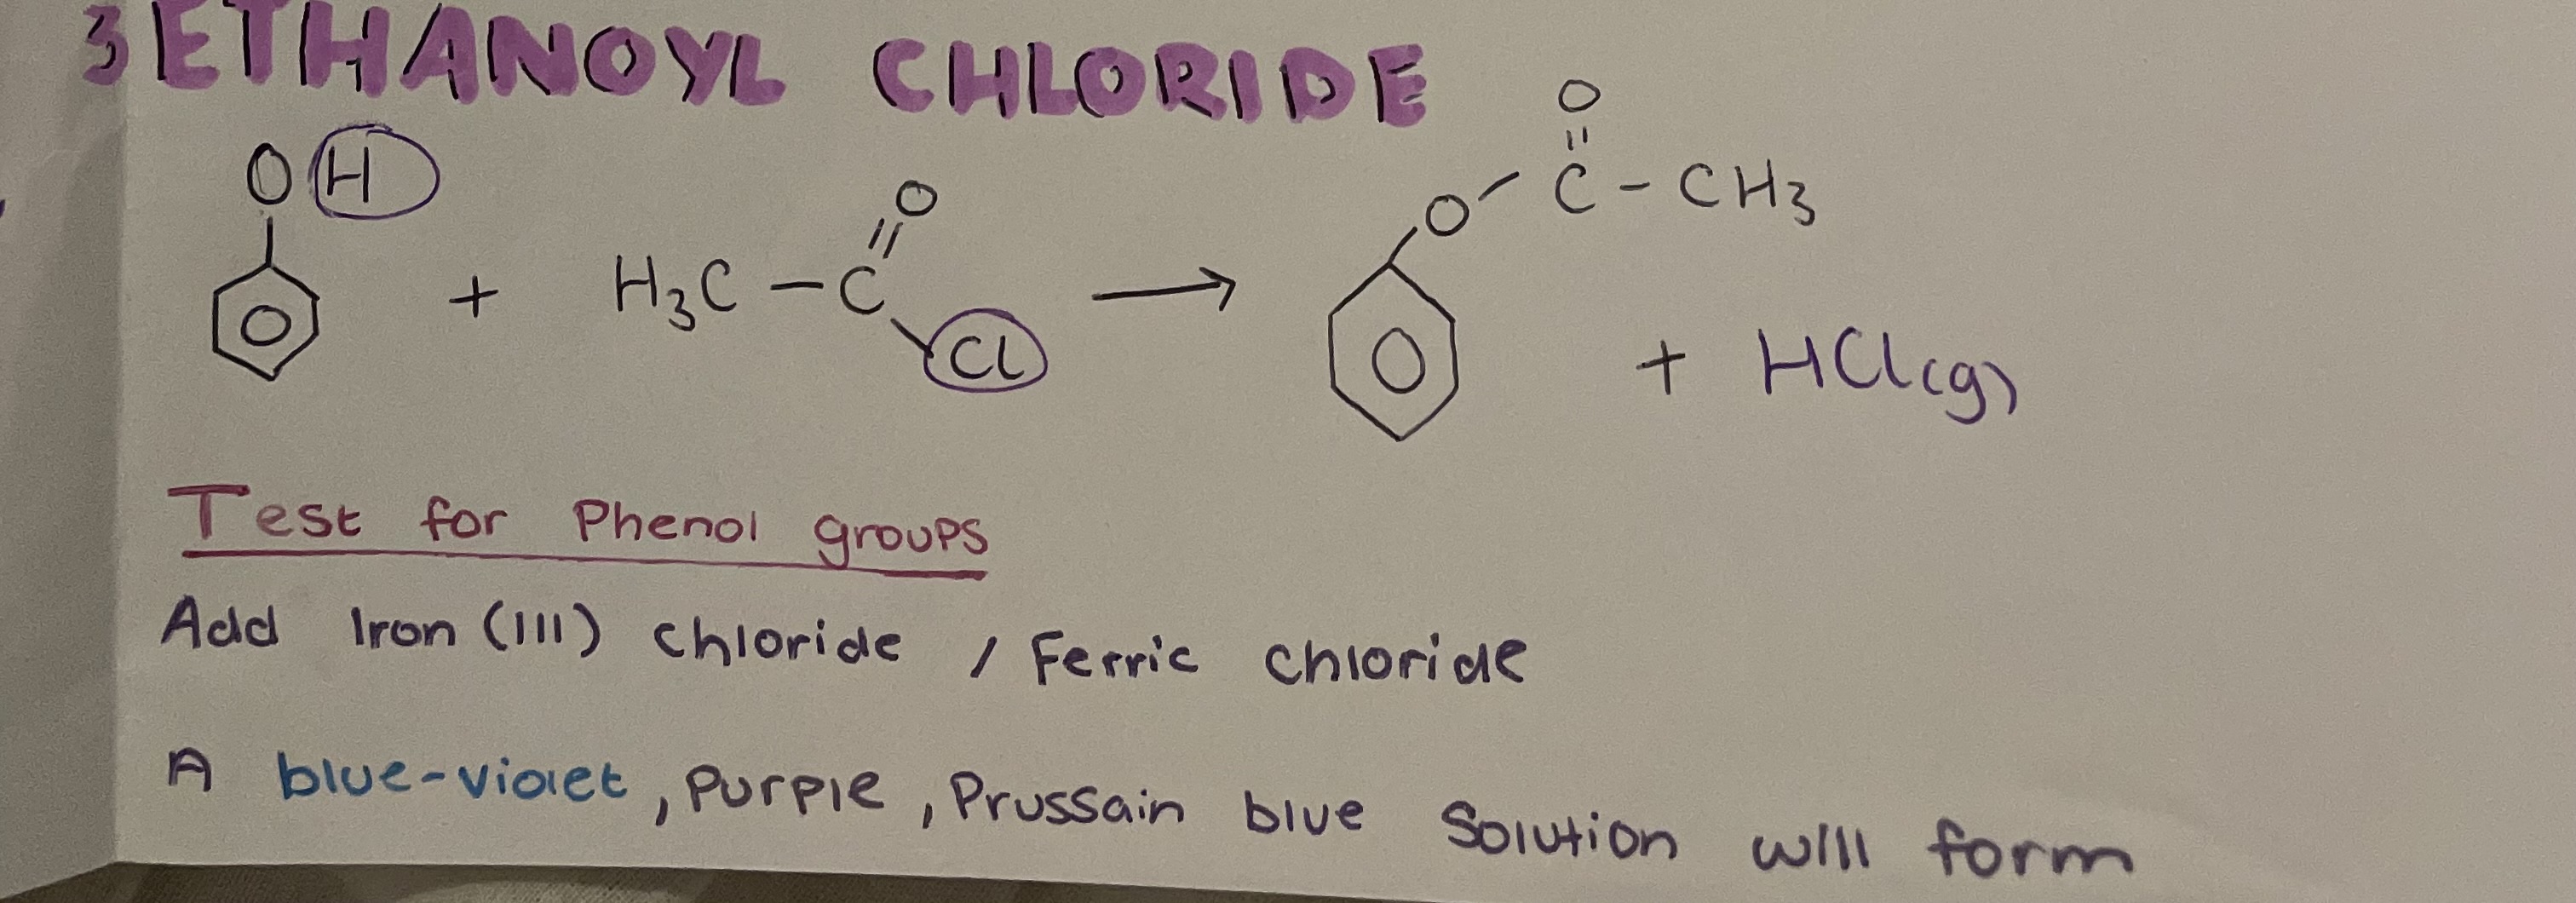 3 ETHANOYL CHLORIDE
OH + H3C - C = O Cl → O - C = O - CH3 + HCl(g)
Test for Phenol groups
Add Iron (III) chloride / Ferric chloride
A blue-violet, Purple, Prussain blue solution will form